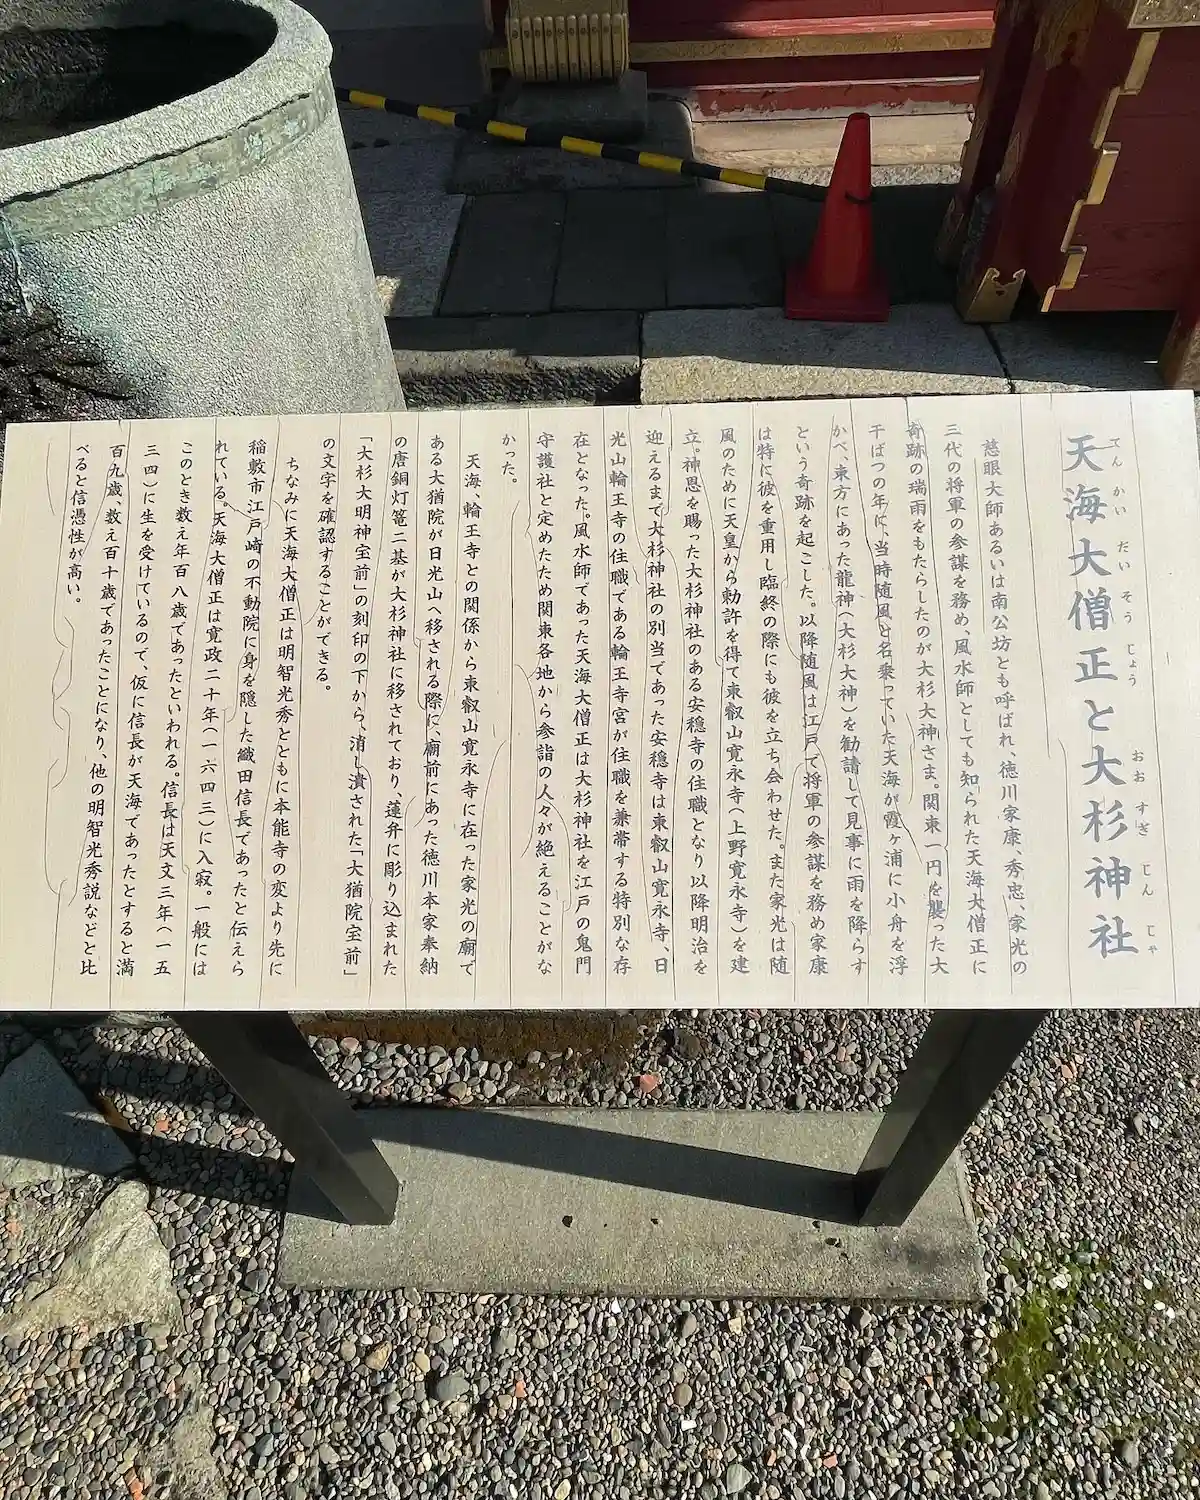 天海大僧正と大杉神社
てんかいだいそうじょう おおすぎじんじゃ
慈眼大師あるいは南公坊とも呼ばれ、徳川家康、秀忠、家光の
三代の将軍の参謀を務め、風水師としても知られた天海大僧正に
奇跡の瑞雨をもたらしたのが大杉大神さま。関東一円を襲った大
干ばつの年に、当時随風と名乗っていた天海が霞ヶ浦に小舟を浮
かべ、東方にあった龍神(大杉大神)を勧請して見事に雨を降らす
という奇跡を起こした。以降随風は江戸で将軍の参謀を務め家康
は特に彼を重用し臨終の際にも彼を立ち会わせた。また家光は随
風のために天皇から勅許を得て東叡山寛永寺(上野寛永寺)を建
立。神恩を賜った大杉神社のある安穏寺の住職となり以降明治を
迎えるまで大杉神社の別当であった安穏寺は東叡山寛永寺、日
光山輪王寺の住職である輪王寺宮が住職を兼帯する特別な存
在となった。風水師であった天海大僧正は大杉神社を江戸の鬼門
守護社と定めたため関東各地から参詣の人々が絶えることがな
かった。
天海、輪王寺との関係から東叡山寛永寺に在った家光の廟で
ある大猶院が日光山へ移される際に、廟前にあった徳川本家奉納
の唐銅灯篭二基が大杉神社に移されており、蓮弁に彫り込まれた
「大杉大明神宝前」の刻印の下から、消し潰された「大猶院宝前」
の文字を確認することができる。
ちなみに天海大僧正は明智光秀とともに本能寺の変より先に
稲敷市江戸崎の不動院に身を隠した織田信長であったと伝えら
れている。天海大僧正は寛政二十年(一六四三)に入寂。一般には
このとき数え年百八歳であったといわれる。信長は天文三年(一五
三四)に生を受けているので、仮に信長が天海であったとすると満
百九歳、数え百十歳であったことになり、他の明智光秀説などと比
べると信憑性が高い。